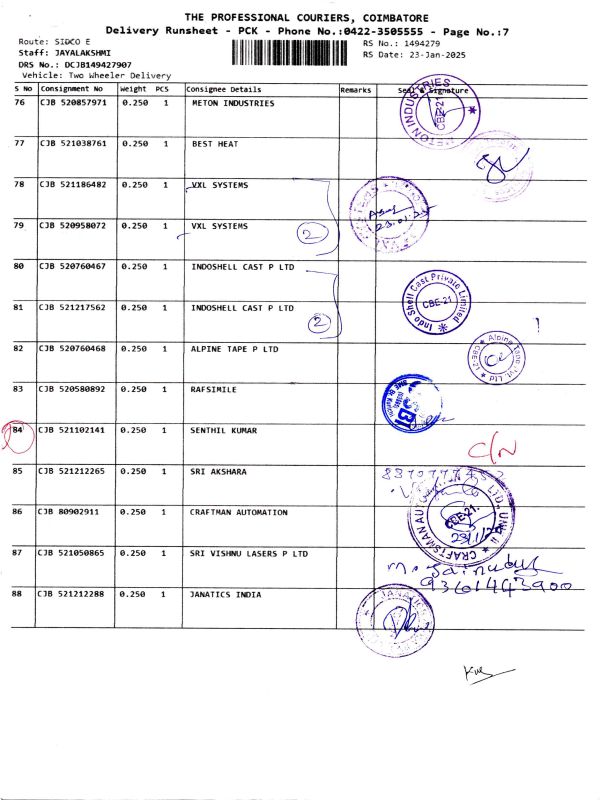 THE PROFESSIONAL COURIERS, COIMBATORE
Delivery Runsheet - PCK - Phone No.:0422-3505555 - Page No.:7
Route: SIDCO E RS No.: 1494279
Staff: JAYALAKSHMI RS Date: 23-Jan-2025
DRS No.: DCJB149427907
Vehicle: Two Wheeler Delivery
S No Consignment No Weight PCS Consignee Details Remarks Seal & Signature
76 CJB 520857971 0.250 1 METON INDUSTRIES METON INDUSTRIES CBE-21
77 CJB 521038761 0.250 1 BEST HEAT
78 CJB 521186482 0.250 1 VXL SYSTEMS
79 CJB 520958072 0.250 1 VXL SYSTEMS 2
80 CJB 520760467 0.250 1 INDOSHELL CAST P LTD
81 CJB 521217562 0.250 1 INDOSHELL CAST P LTD 2 Indo Shell Cast Private Limited CBE-21
82 CJB 520760468 0.250 1 ALPINE TAPE P LTD Alpine Tape Pvt. Ltd CBE-21
83 CJB 520580892 0.250 1 RAFSIMILE SBI
84 CJB 521102141 0.250 1 SENTHIL KUMAR C/N
85 CJB 521212265 0.250 1 SRI AKSHARA
86 CJB 80902911 0.250 1 CRAFTMAN AUTOMATION CBE-21
87 CJB 521050865 0.250 1 SRI VISHNU LASERS P LTD
9361443900
88 CJB 521212288 0.250 1 JANATICS INDIA JANATICS